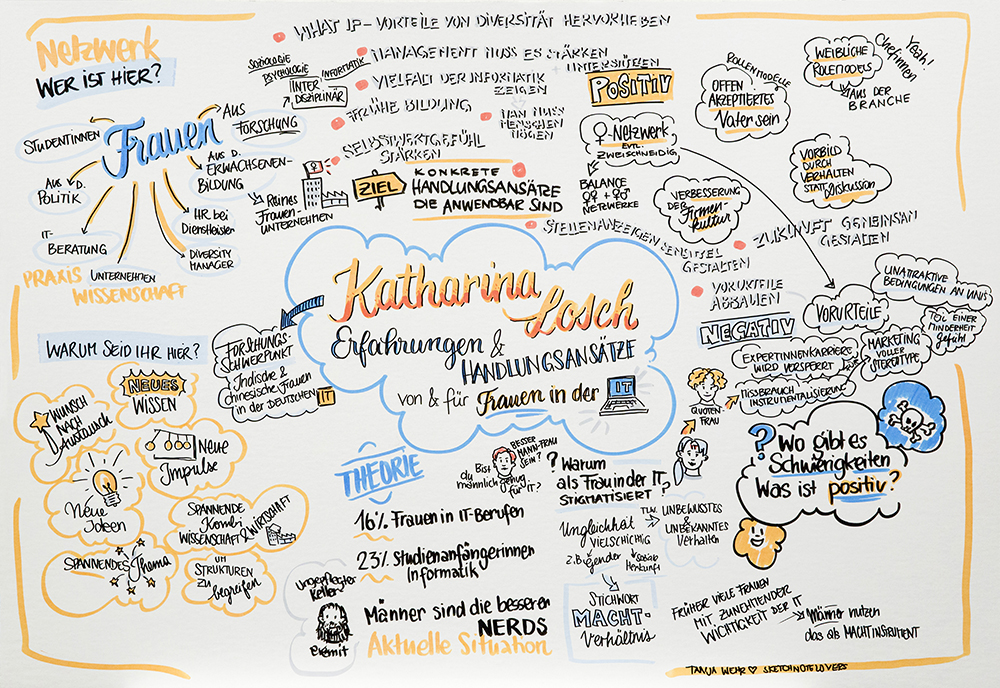 Netzwerk
WER IST HIER?
Frauen
STUDENTINNEN
AUS D.
POLITIK
IT-
BERATUNG
PRAXIS
UNTERNEHMEN
WISSENSCHAFT
AUS
FORSCHUNG
SOZIOLOGIE
PSYCHOLOGIE
INFORMATIK
INTER
DISZIPLINÄR
AUS D.
ERWACHSENEN-
BILDUNG
HR bei
Dienstleister
DIVERSITY
MANAGER
Reines
Frauen-
UNTERNEHMEN
WHAT IF - VORTEILE VON DIVERSITÄT HERVORHEBEN
MANAGEMENT MUSS ES STÄRKEN
+ UNTERSTÜTZEN
VIELFALT DER INFORMATIK
ZEIGEN
FRÜHE BILDUNG
MAN MUSS
MENSCHEN
MÖGEN
SELBSTWERTGEFÜHL
STÄRKEN
ZIEL
KONKRETE
HANDLUNGSANSÄTZE
DIE ANWENDBAR SIND
STELLENANZEIGEN SENSIBEL
GESTALTEN
ZUKUNFT GEMEINSAM
GESTALTEN
VORURTEILE
ABBAUEN
POSITIV
♀-Netzwerk
EVTL.
ZWEISCHNEIDIG
BALANCE
♀♀ + ♀♂
NETZWERKE
ROLLENMODELLE
OFFEN
AKZEPTIERTES
Vater sein
WEIBLICHE
ROLEMODELS
Yeah!
Chefinnen
AUS DER
BRANCHE
VERBESSERUNG
DER
Firmen-
kultur
VORBILD
DURCH
VERHALTEN
STATT
Diskussion
Katharina
Losch
Erfahrungen &
HANDLUNGSANSÄTZE
von & für Frauen in der IT
FORSCHUNGS-
SCHWERPUNKT
Indische &
chinesische Frauen
in der DEUTSCHEN IT
NEGATIV
VORURTEILE
UNATTRAKTIVE
BEDINGUNGEN AN UNIS
TEIL EINER
MINDERHEIT
Gefühl
MARKETING
VOLLER
STEREOTYPE
EXPERTINNENKARRIERE
WIRD VERSPERRT
MISSBRAUCH
INSTRUMENTALISIERUNG
QUOTEN-
FRAU
? Wo gibt es
Schwierigkeiten
Was ist positiv?
WARUM SEID IHR HIER?
WUNSCH
NACH
Austausch
NEUES
WISSEN
Neue
Ideen
Neue
Impulse
SPANNENDE
Kombi
WISSENSCHAFT & WIRTSCHAFT
SPANNENDES Thema
UM
STRUKTUREN
ZU
begreifen
THEORIE
Bist
du
männlich genug
für IT?
BESSER
MANN-FRAU
SEIN?
? Warum
als Frau in der IT
STIGMATISIERT?
16% Frauen in IT-Berufen
23% Studienanfängerinnen
Informatik
Männer sind die besseren
NERDS
Aktuelle Situation
ungepflegter
Keller-
eremit
Ungleichheit
VIELSCHICHTIG
z.B. gender
soziale
Herkunft
TLW.
UNBEWUSSTES
&
UNBEKANNTES
Verhalten
STICHWORT
MACHT-
Verhältnis
FRÜHER VIELE FRAUEN
MIT ZUNEHMENDER
WICHTIGKEIT DER IT
Männer nutzen
das als MACHTINSTRUMENT
TANJA WEHR ♡ SKETCHNOTELOVERS